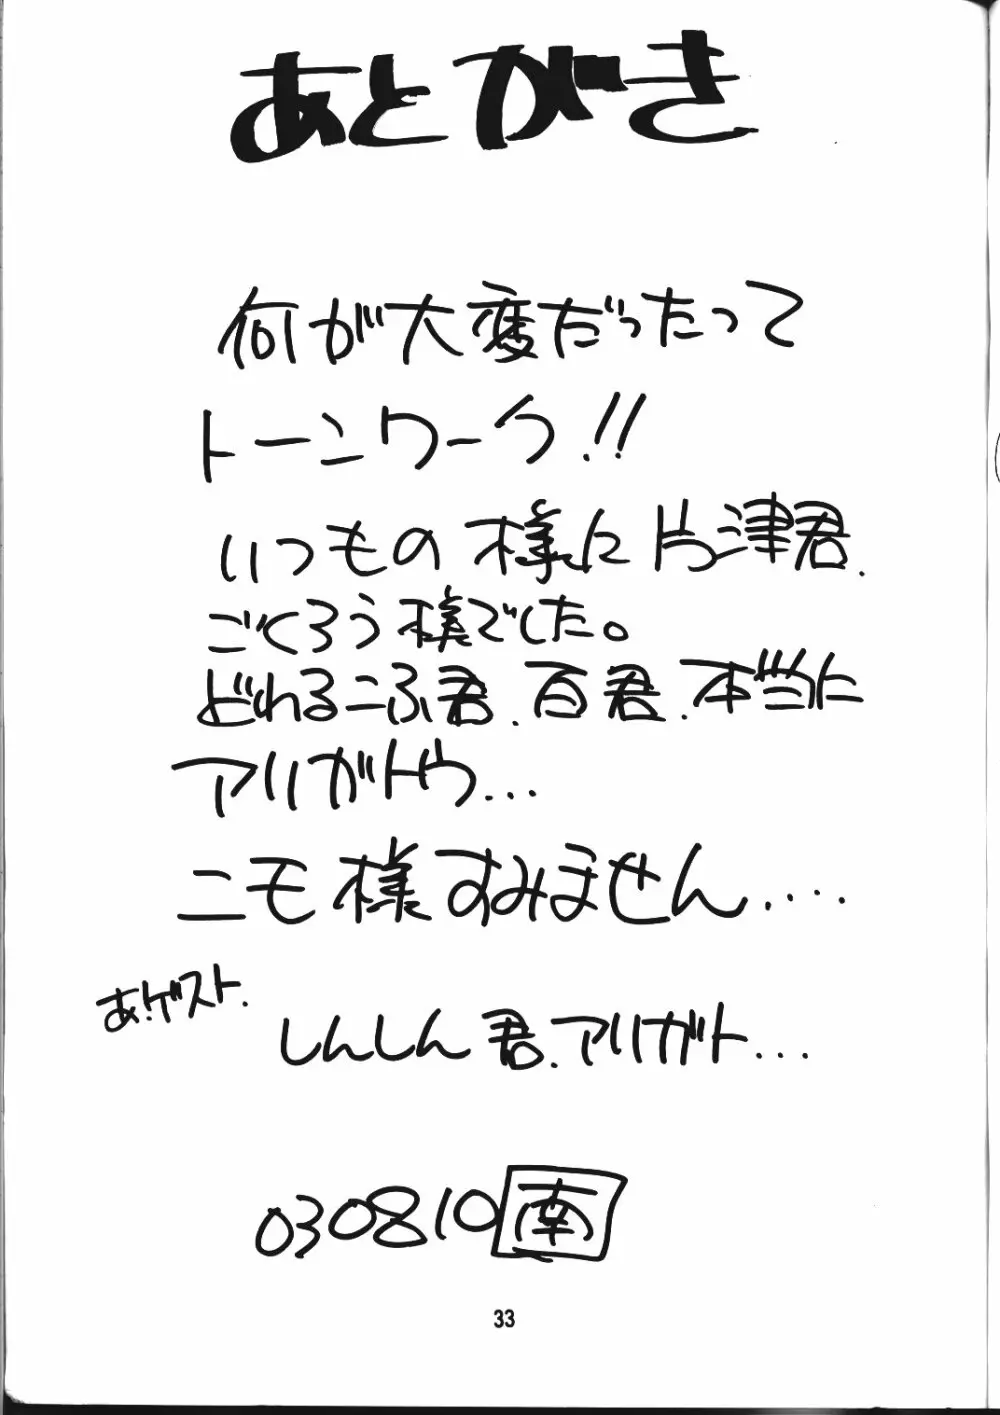 あとがき
何が大変だったって
トーンワーク!!
いつもの様に 津君.
ごくろう様でした。
どれるこふ君.百君.本当に
アリガトウ...
ニモ様すみません....
あ.ゲスト.
しんしん君.アリガト...
030810 南
33